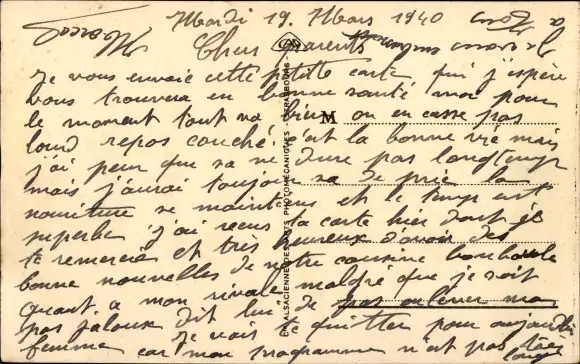 Mardi 19. Mars 1940
Marcel
Chers Parents
Je vous envoie cette petite carte qui j'espère
vous trouvera en bonne santé moi pour
le moment tout va bien on en casse pas
lourd repos couché c'ai la bonne vie mais
j'ai peur que sa ne dure pas longtemp
mais j'aurai toujour sa de prie la
nouriture se maintiens et le temp est
superbe j'ai reçus ta carte hier dont je
te remercie et très heureux d'avoir des
bonne nouvelles de notre cousine
quant a mon rivale malgré que je soit
pas jaloux dit lui de pas enlever ma
femme car mon programme n'est pas
Je vais te quitter pour aujourdhui
M
ALSACIENNE DES ARTS PHOTOMÉCANIQUES - STRASBOURG